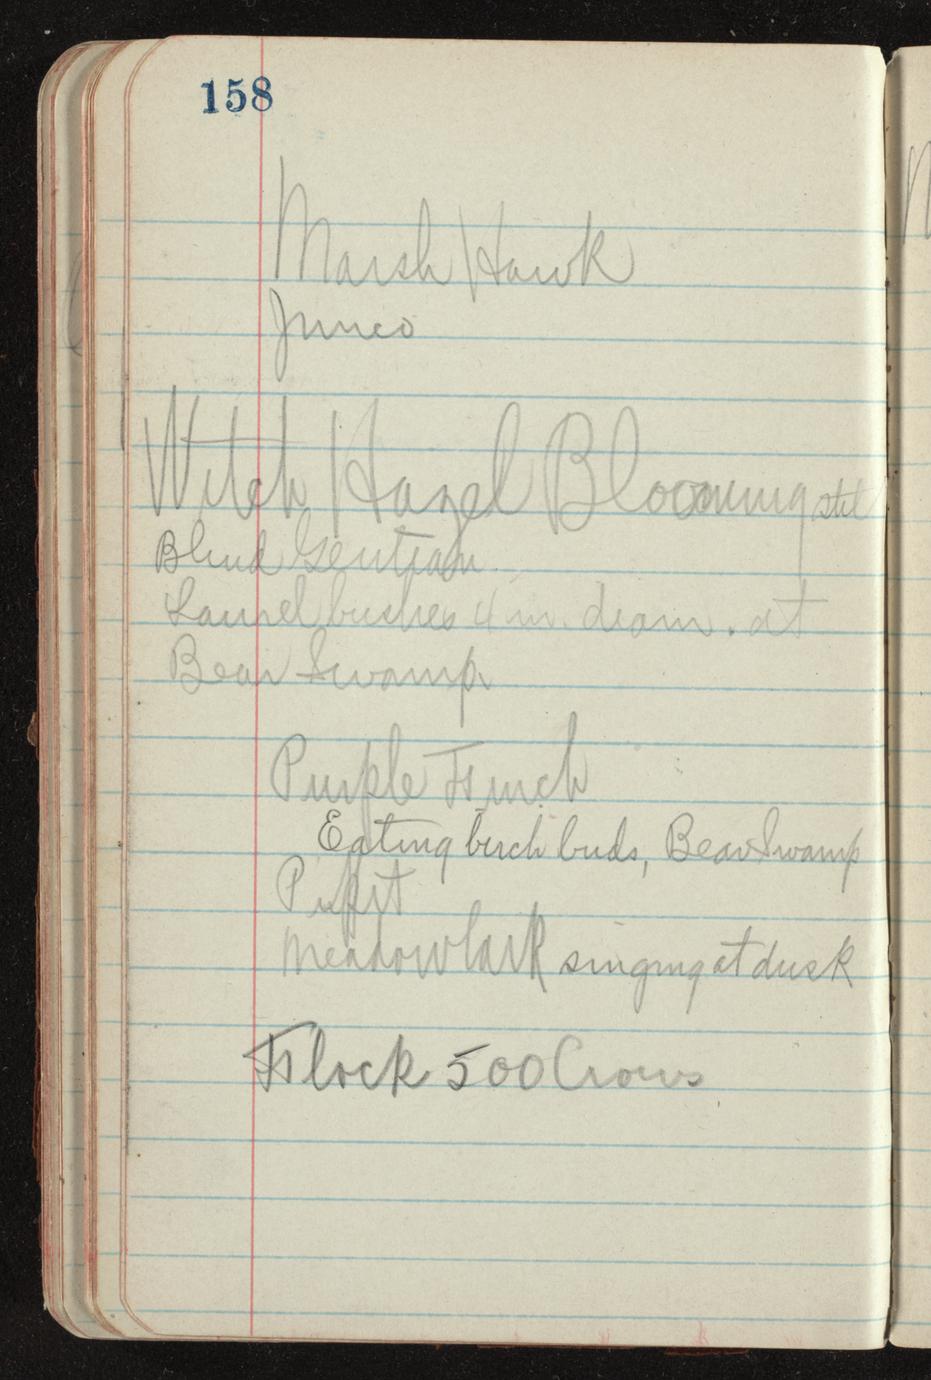 158
Marsh Hawk
Junco
Witch Hazel Blooming still
Blind Gentian
Laurel bushes 4 in. diam. at
Bear Swamp
Purple Finch
Eating birch buds, Bear Swamp
Pipit
Meadowlark singing at dusk
Flock 500 Crows